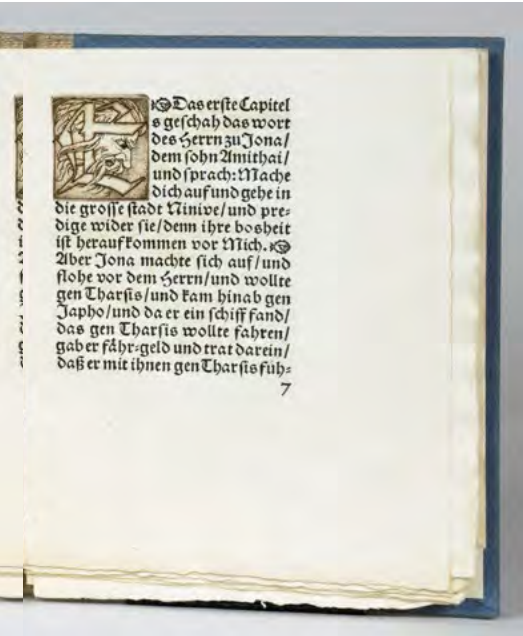 Das erſte Capitel
Es geſchah das wort
des Herrn zu Jona/
dem ſohn Amithai/
und ſprach: Mache
dich auf und gehe in
die groſſe ſtadt Ninive/und pre=
dige wider ſie/denn ihre bosheit
iſt herauf kommen vor Mich.
Aber Jona machte ſich auf/und
flohe vor dem Herrn/und wollte
gen Tharſis/und kam hinab gen
Japho/und da er ein ſchiff fand/
das gen Tharſis wollte fahren/
gab er fähr=geld und trat darein/
daß er mit ihnen gen Tharſis füh=
7